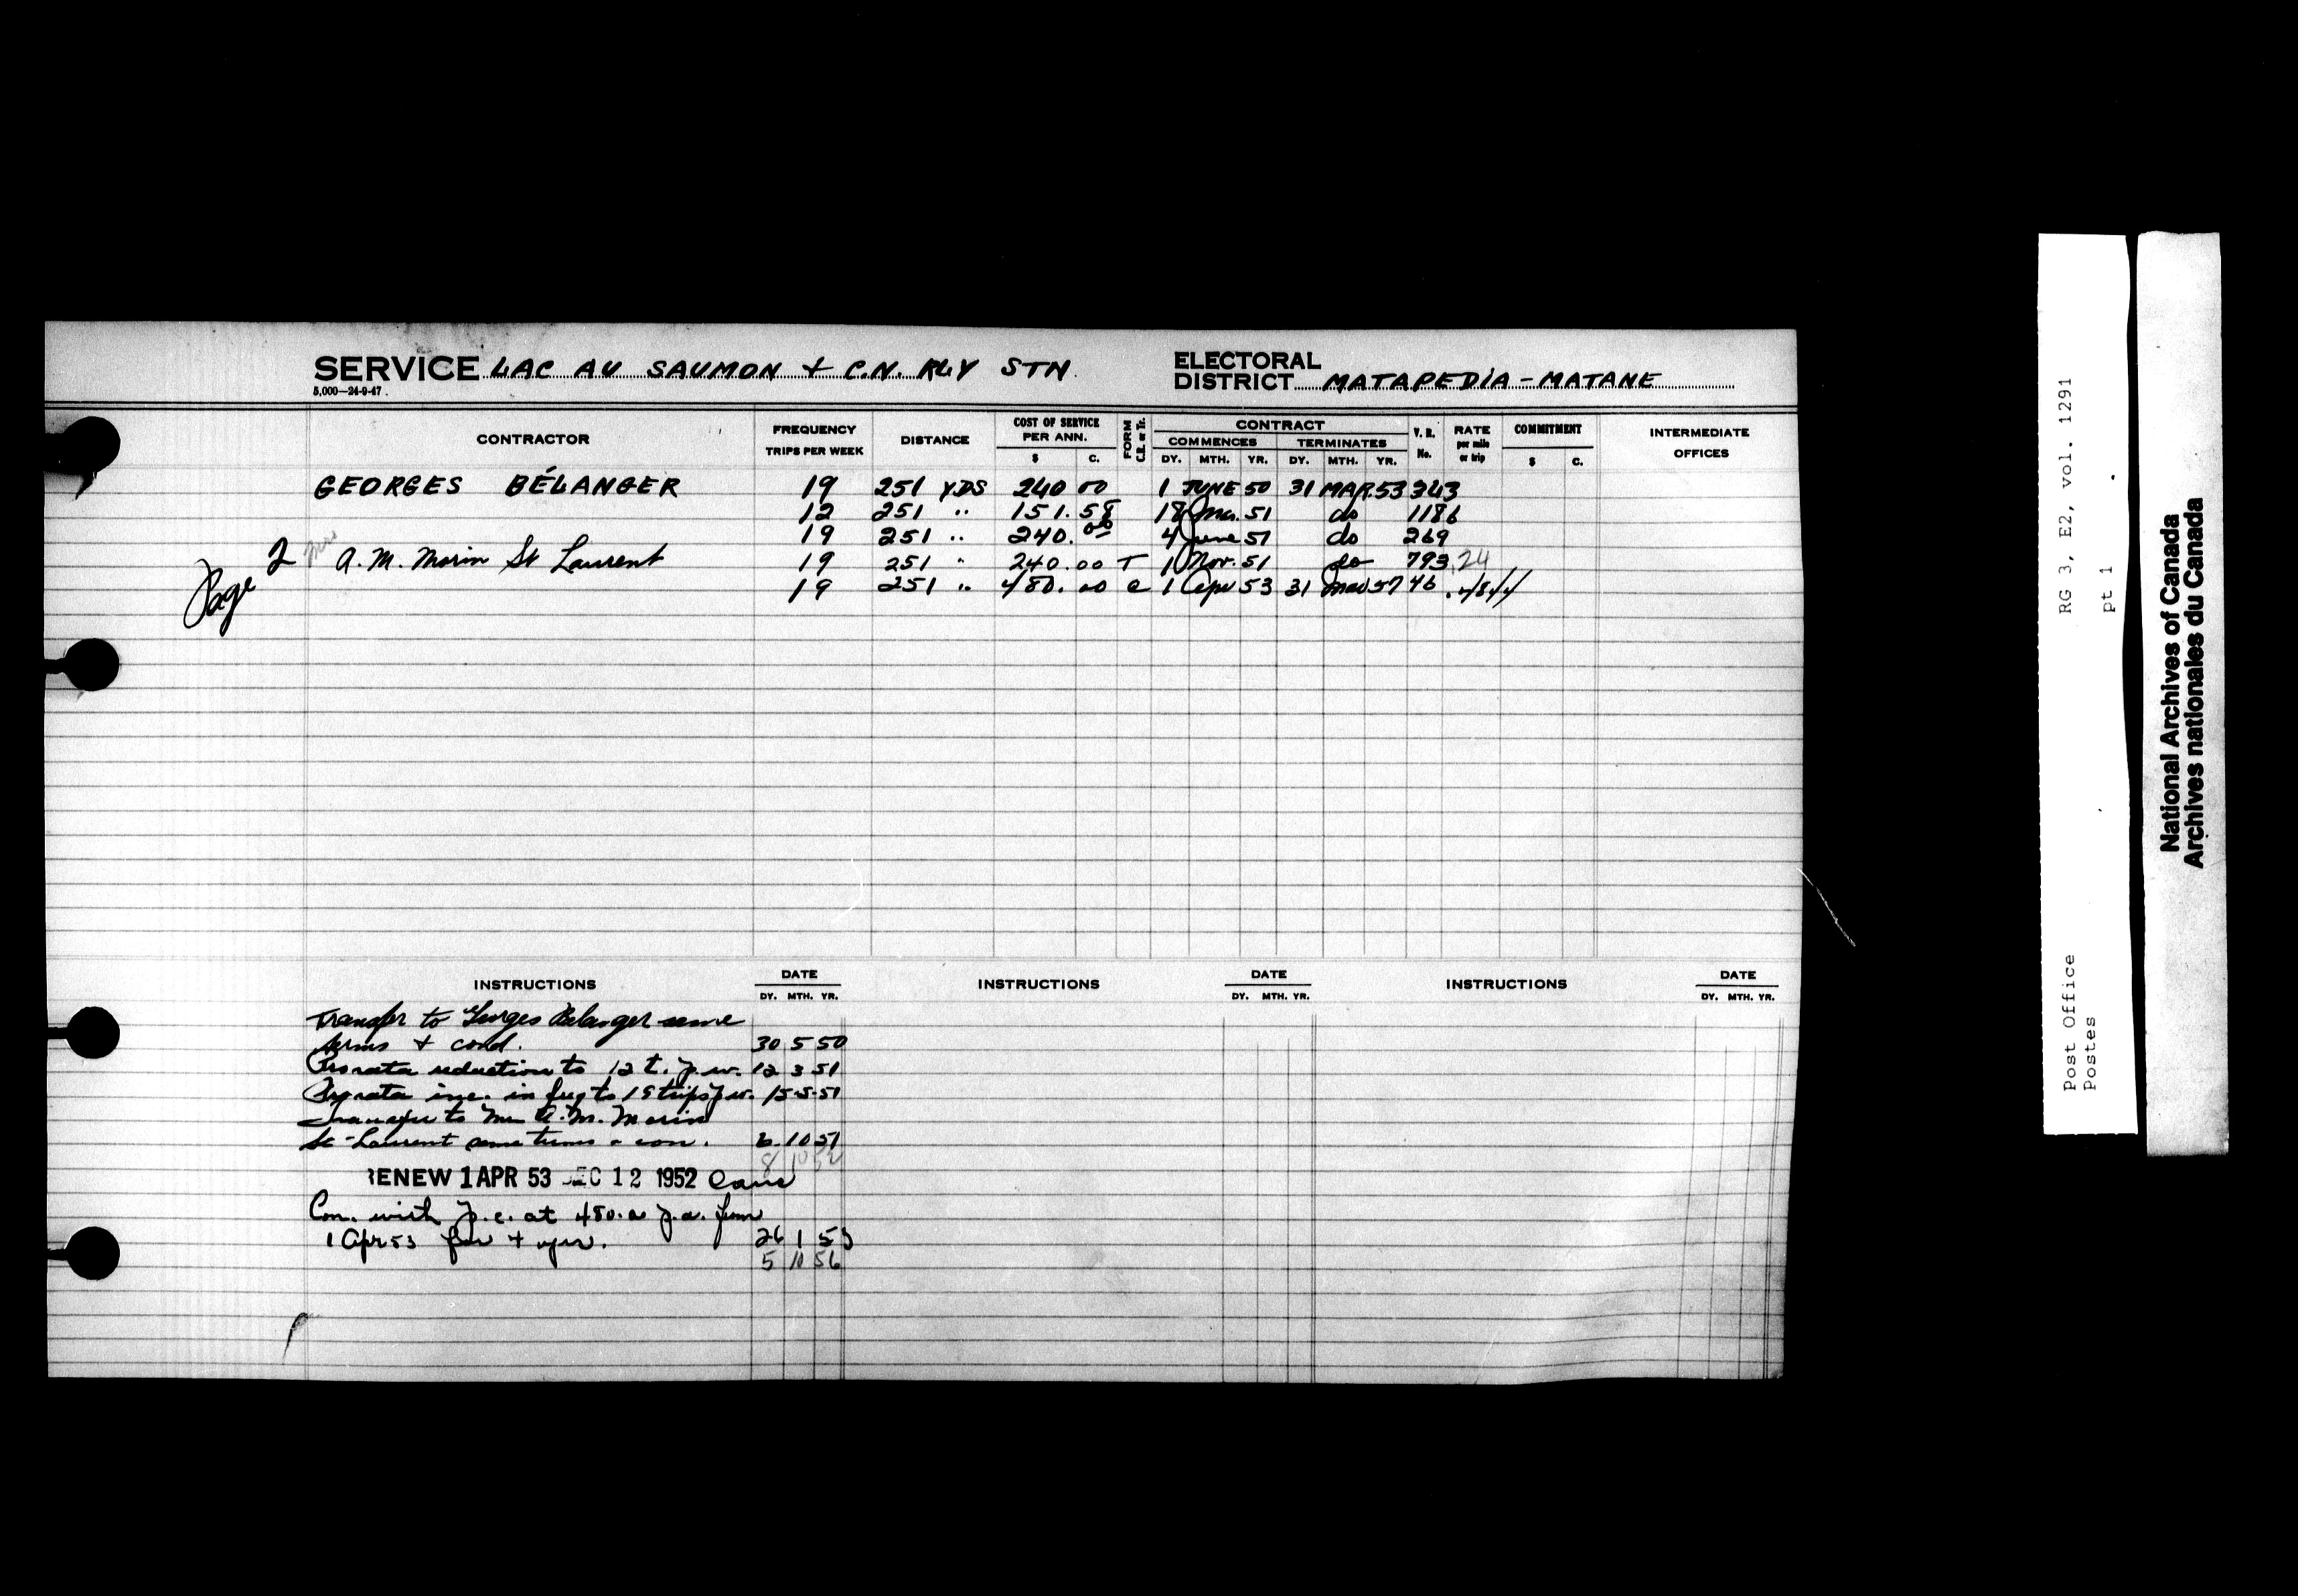 SERVICE LAC AU SAUMON & C.N. RLY STN. ELECTORAL DISTRICT MATAPEDIA-MATANE
5,000—24-9-47
CONTRACTOR FREQUENCY TRIPS PER WEEK DISTANCE COST OF SERVICE PER ANN. $ C. FORM C.R. or Tr. CONTRACT COMMENCES DY. MTH. YR. TERMINATES DY. MTH. YR. V.R. No. RATE per mile or trip COMMITMENT $ C. INTERMEDIATE OFFICES
GEORGES BÉLANGER 19 251 YDS 240 00 1 JUNE 50 31 MAR. 53 343
12 251 " 151.58 18 Mar. 51 do 1186
19 251 " 240.00 4 June 51 do 269
Page 2 Mrs A. M. Morin St Laurent 19 251 " 240.00 T 1 Nov. 51 do 793 .24
19 251 " 480.00 C 1 Apr 53 31 Mar 57 46 .4844
INSTRUCTIONS DATE DY. MTH. YR. INSTRUCTIONS DATE DY. MTH. YR. INSTRUCTIONS DATE DY. MTH. YR.
Transfer to Georges Belanger same
terms & cond. 30 5 50
Prorata reduction to 12 t. p.w. 12 3 51
Prorata inc. in freq to 19 trips p.w. 15-5-51
Transfer to Mrs A. M. Morin
St-Laurent same terms & con. 6.10 51
8 10 52
RENEW 1 APR 53 DEC 12 1952
Con. with p.c. at 480.00 p.a. from
1 Apr 53 for 4 yrs. 26 1 53
5 10 56
RG 3, E2, vol. 1291
pt 1
Post Office
Postes
National Archives of Canada
Archives nationales du Canada